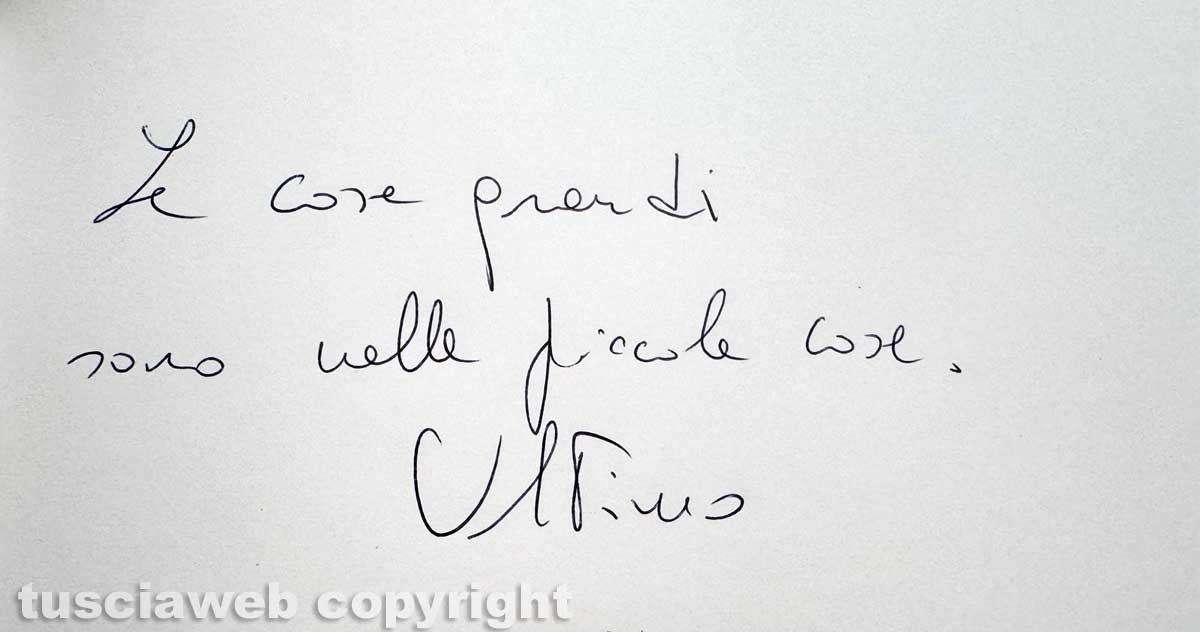 Le cose grandi
sono nelle piccole cose.
Ultimo
tusciaweb copyright